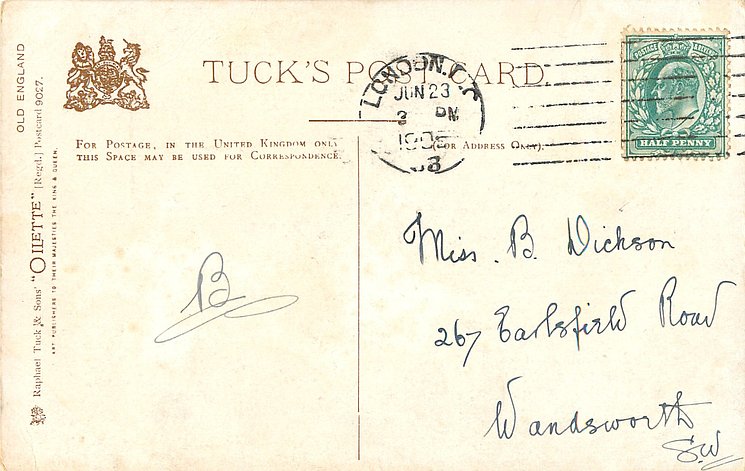 OLD ENGLAND
Raphael Tuck & Sons' "OILETTE" [Regd.] Postcard 9027.
ART PUBLISHERS TO THEIR MAJESTIES THE KING & QUEEN.
TUCK'S POST CARD.
FOR POSTAGE, IN THE UNITED KINGDOM ONLY
THIS SPACE MAY BE USED FOR CORRESPONDENCE.
(FOR ADDRESS ONLY).
LONDON.
JUN 23
PM
POSTAGE
HALF PENNY
B
Miss. B. Dickson
267 Earlsfield Road
Wandsworth
S.W